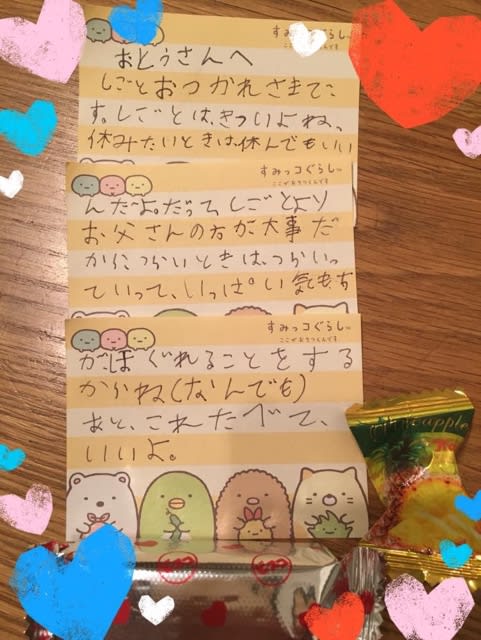 すみっコぐらし™
ここがおちつくんです
おとうさんへ
しごとおつかれさまで
す。しごとは、きついよね、
休みたいときは、休んでもいい
すみっコぐらし™
ここがおちつくんです
んだよ。だって、しごとより
お父さんの方が大事だ
から、つらいときは、つらいっ
ていって、いっぱい気もち
すみっコぐらし™
ここがおちつくんです
がほぐれることをする
からね(なんでも)
あと、これたべて、
いいよ。